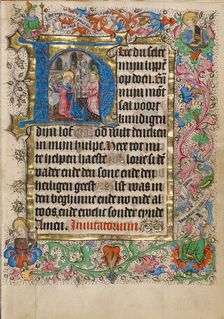 Ere du selt
mijn lippē
op doen En
mijn mont
sal voort
kundigen
dijn lof God wilt dencken
in mijn hulpe Here tot mi
te helpen haeste Glorie si dē
vader ende den sone ende dē
heiligen geest Als it was in
den beghinne ende nv ende al
toos ende ewelic sonder eynde
Amen Inuitatorium